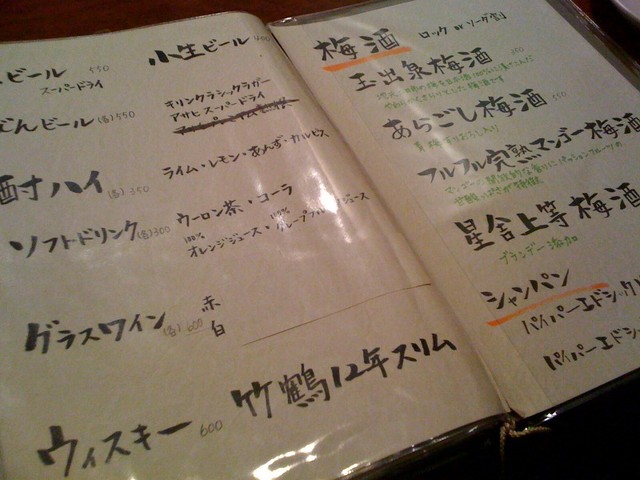 ビール 550
スーパードライ
小生ビール 400
びんビール (各)550
キリンクラシックラガー
アサヒスーパードライ
酎ハイ (各)350
ライム・レモン・あんず・カルピス
ソフトドリンク (各)300
ウーロン茶・コーラ
100% オレンジジュース・100% グレープフルーツジュース
グラスワイン (各)600 赤 白
ウィスキー 600
竹鶴12年スリム
梅酒 ロック or ソーダ割
玉出泉梅酒
あらごし梅酒 550
フルフル完熟マンゴー梅酒
星舎上等梅酒
ブランデー添加
シャンパン
パイパーエドシック
パイパーエドシ